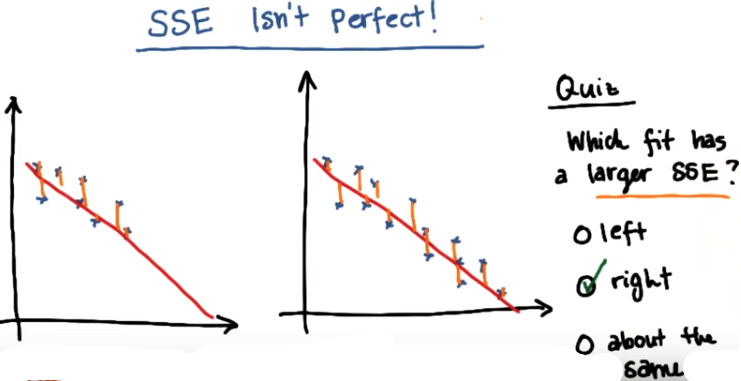 SSE Isn't Perfect!
Quiz
Which fit has
a larger SSE?
left
right
about the
same